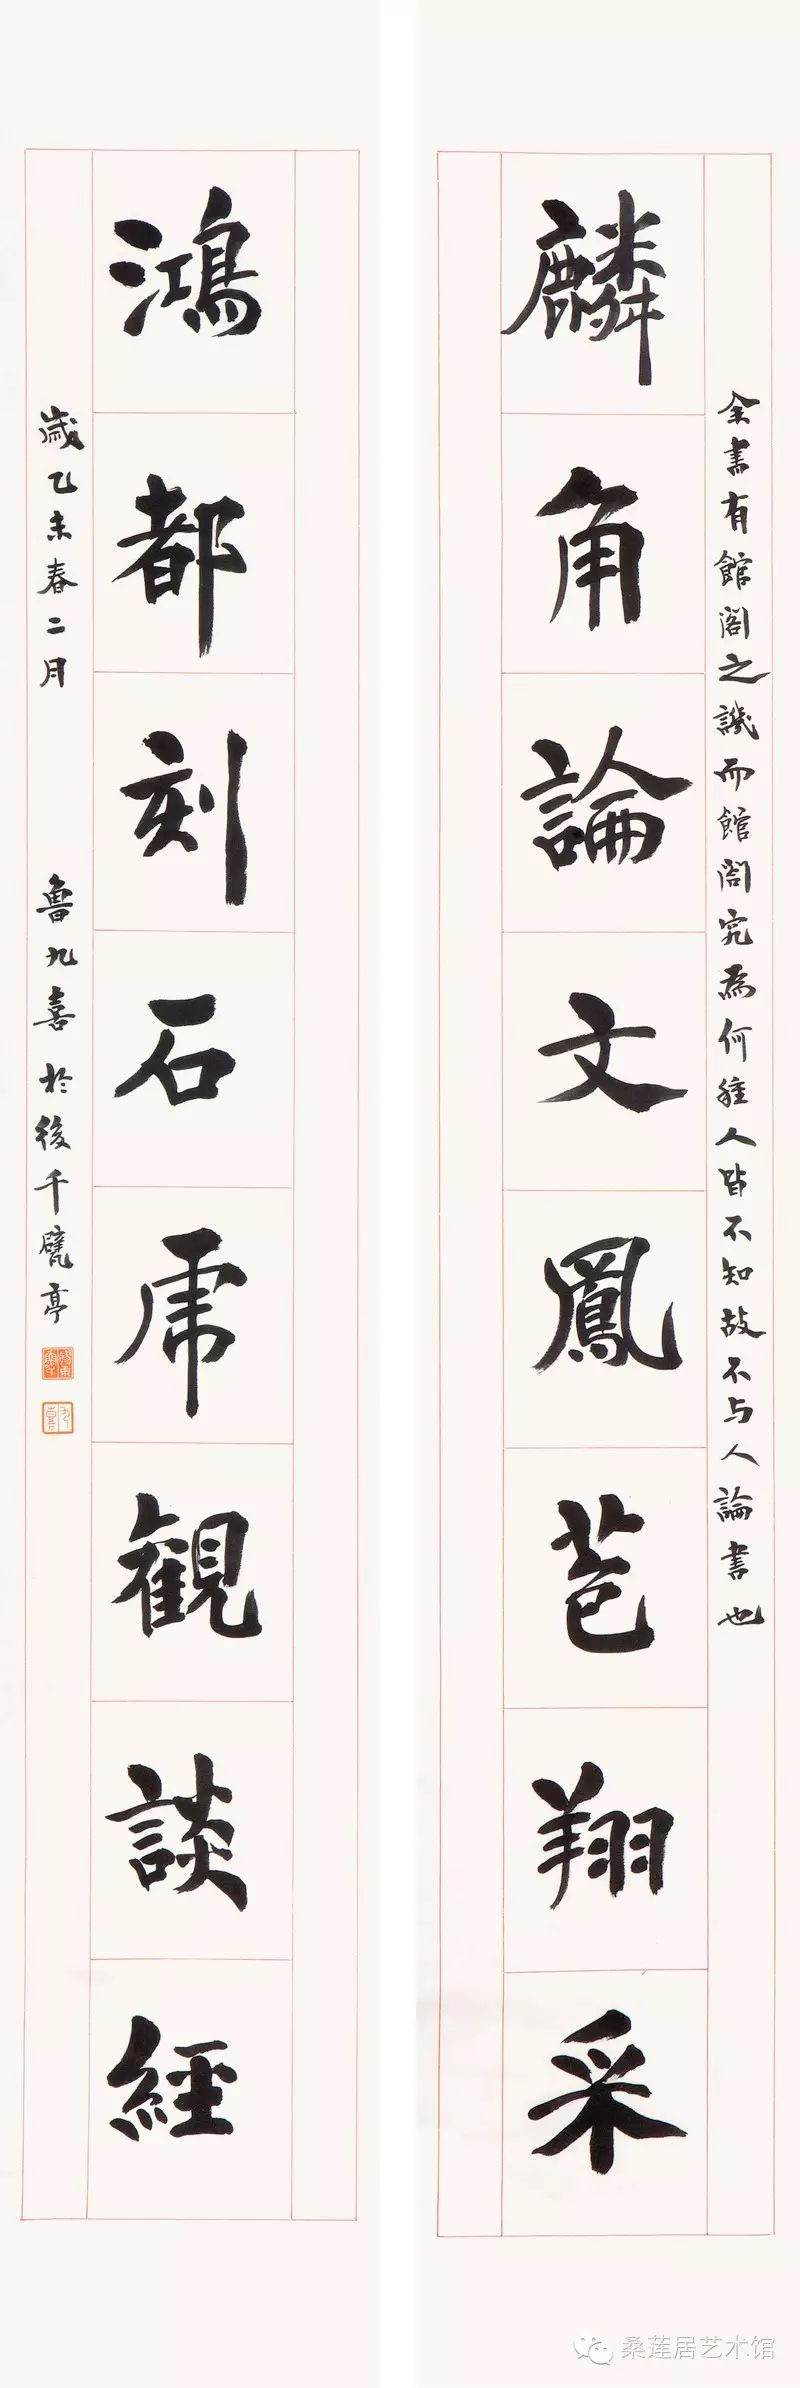 余書有館閣之譏而館閣究為何種人皆不知故不与人論書也
麟角論文鳳苞翔采
鴻都刻石虎觀談經
歲乙未春二月 魯九喜於後千甓亭
九喜
桑莲居艺术馆